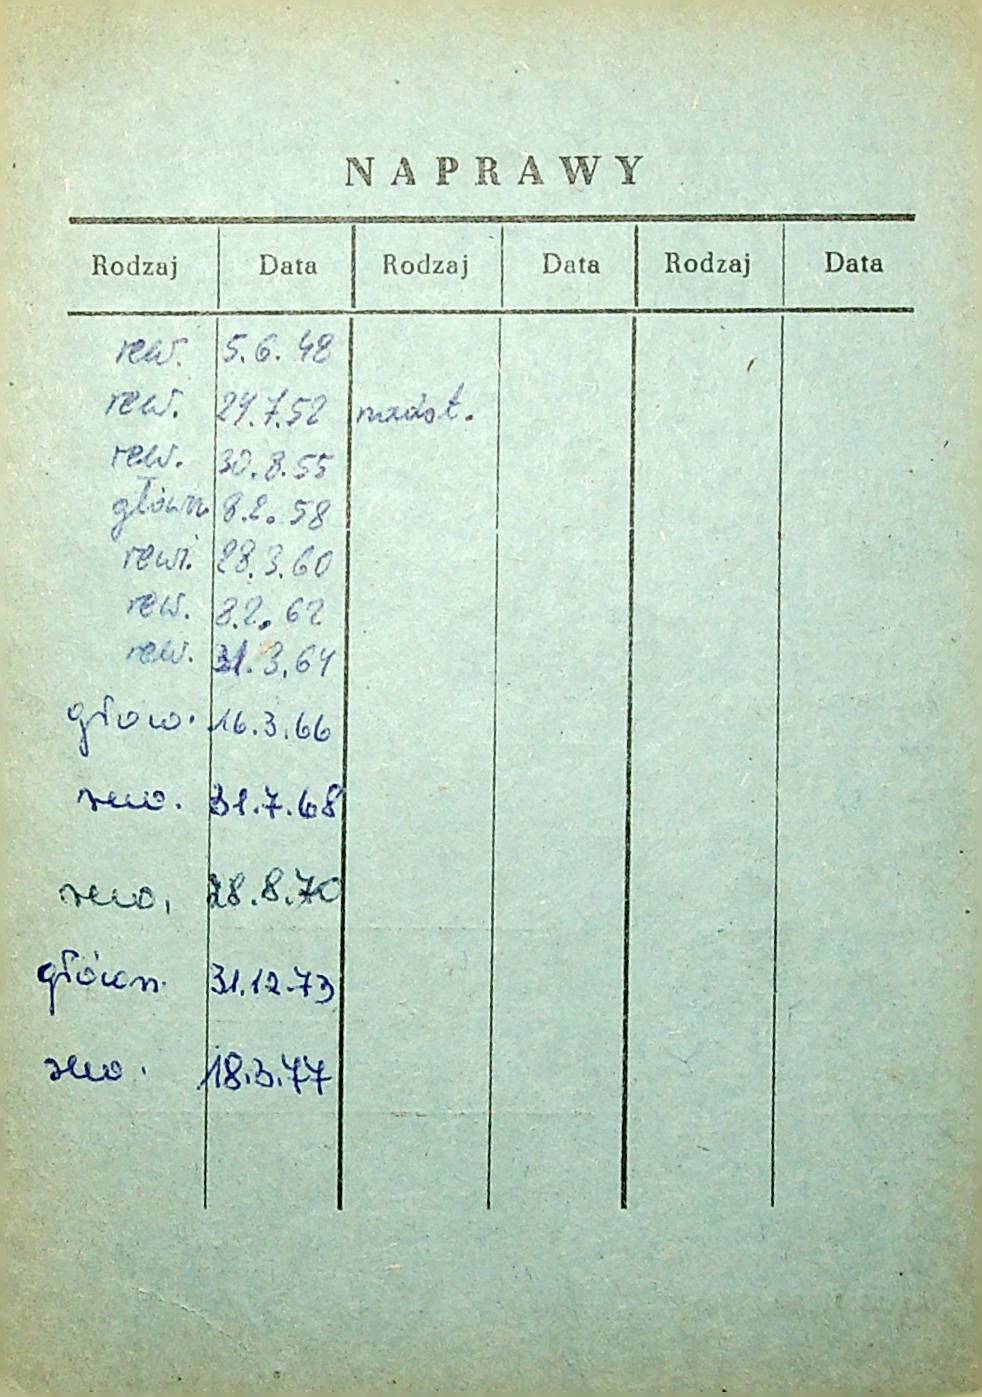 NAPRAWY
Rodzaj Data Rodzaj Data Rodzaj Data
rew. 5.6.48
rew. 24.7.52
rew. 30.8.55
główn. 8.2.58
rewi. 28.3.60
rew. 8.2.62
rew. 31.3.64
głow. 16.3.66
rew. 31.7.68
rew. 28.8.70
główn. 31.12.73
rew. 18.3.77